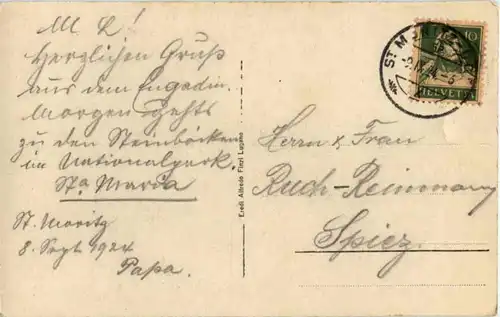 M. L!
Herzlichen Gruß
aus dem Engadin.
Morgen gehts
zu den Steinböcken
im Nationalpark.
Sta Maria
St. Moritz
8. Sept. 1924
Papa.
Eredi Alfredo Finzi Lugano
ST. M
10
HELVETIA
Herrn & Frau
Ruch-Reimmany
Spiez.